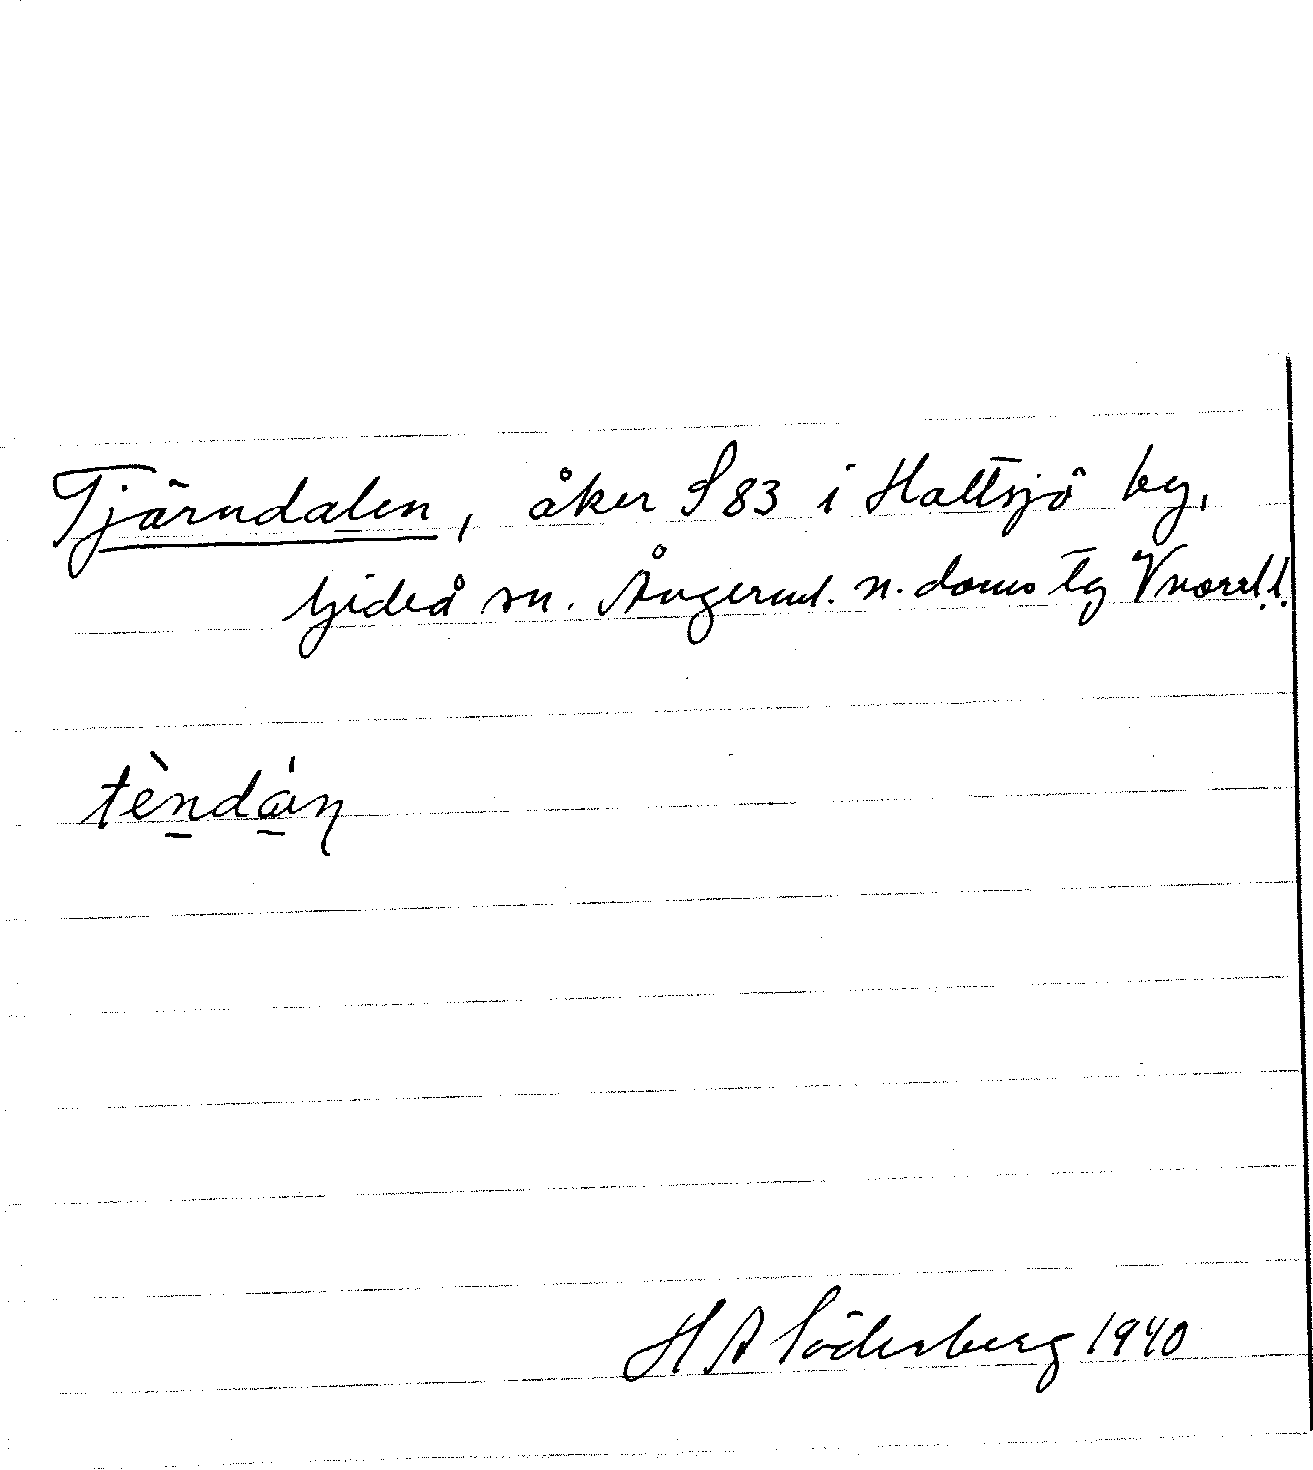 Tjärndalen, åker S 83 i Hattsjö by,
Gideå sn. Ångerml. n. doms tg Vnorrl.
tèndáṇ
H A Söderberg 1940